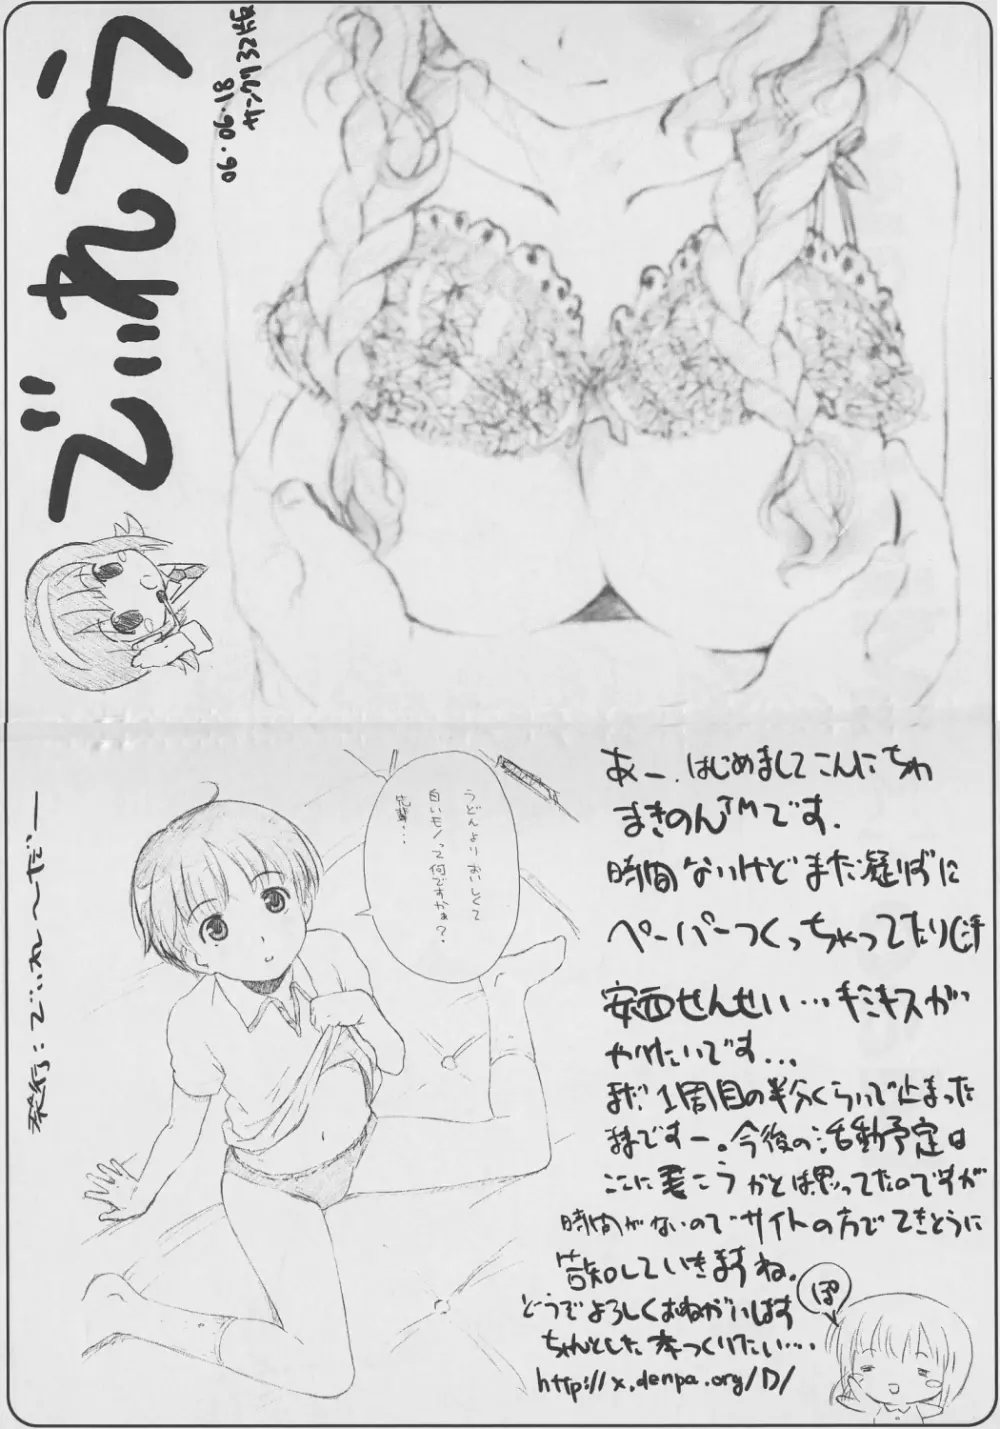 でいれう
06・06・18
サンクリ32版
うどんよりおいしくて
白いモノって何ですかぁ?
先輩・・・
発行:でいれ〜だー
あー、はじめましてこんにちわ
まきのん™です.
時間ないけどまた凝りずに
ペーパーつくっちゃってたり汗
安西せんせい…キミキスがっ
やりたいです…
まだ1周目の半分くらいで止まった
ままですー。今後の活動予定は
ここに書こうかとは思ってたのですが
時間がないのでサイトの方でてきとうに
告知していきますね。
どうぞよろしくおねがいします
ちゃんとした本つくりたい・・・・
http://x.denpa.org/D/
ぽ